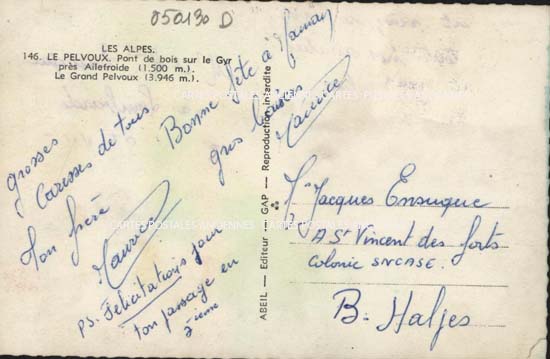 050130 D
LES ALPES.
146. LE PELVOUX. Pont de bois sur le Gyr
près Ailefroide (1.500 m.).
Le Grand Pelvoux (3.946 m.).
Bonne fête à Maman
gros baisers
Maurice
grosses
Caresses de tous
Ton frère
Maurice
PS. Félicitations pour
ton passage en
2ième
ABEIL — Editeur — GAP — Reproduction Interdite
Jacques Ensuque
A St Vincent des forts
Colonie SNCASE.
B. Halpes
CARTES POSTALES ANCIENNES